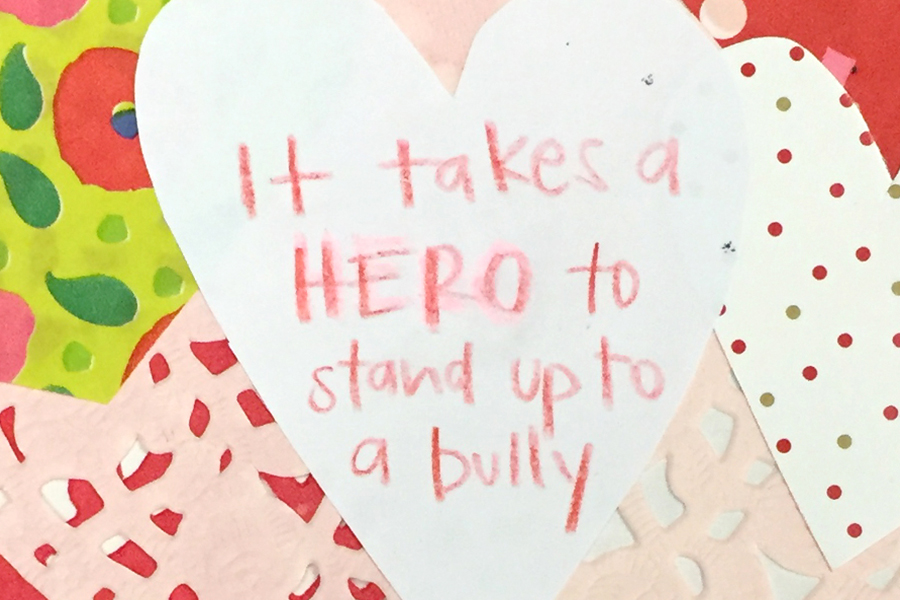 It takes a
HERO to
stand up to
a bully